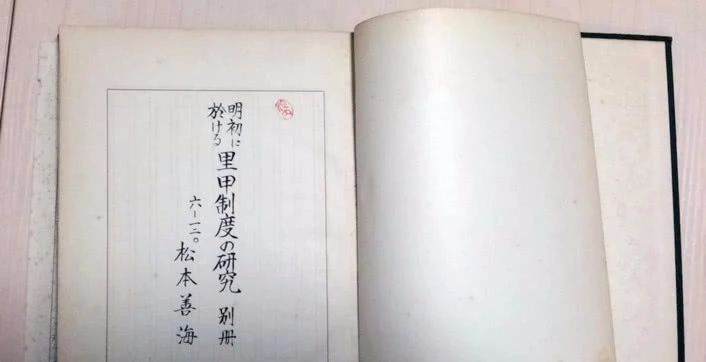 明初に
於ける
里甲制度の研究 別冊
六–一二。
松本善海